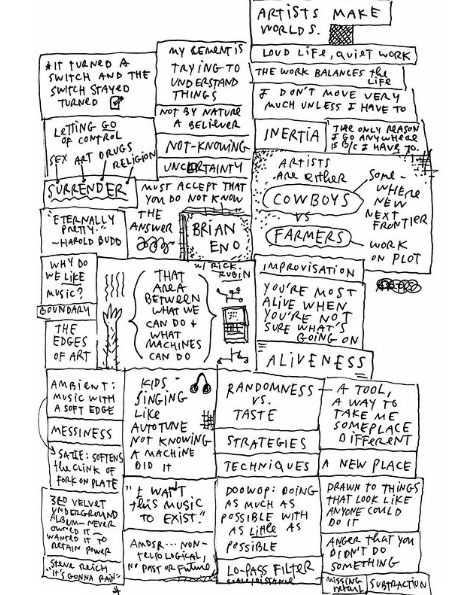 ARTISTS MAKE
WORLDS.
LOUD LIFE, QUIET WORK
THE WORK BALANCES the
LIFE
I DON'T MOVE VERY
MUCH UNLESS I HAVE TO
INERTIA
THE ONLY REASON
I GO ANYWHERE
IS B/C I HAVE TO.
MY REMIT IS
TRYING TO
UNDERSTAND
THINGS
NOT BY NATURE
A BELIEVER
NOT-KNOWING
UNCERTAINTY
MUST ACCEPT THAT
YOU DO NOT KNOW
THE
ANSWER
* IT TURNED A
SWITCH AND THE
SWITCH STAYED
TURNED
LETTING GO
OF CONTROL
SEX ART DRUGS
RELIGION
SURRENDER
"ETERNALLY
PRETTY."
~HAROLD BUDD
BRIAN
ENO
W/ RICK
RUBIN
ARTISTS
ARE EITHER
COWBOYS
VS
FARMERS
SOME-
WHERE
NEW
NEXT
FRONTIER
WORK
ON PLOT
WHY DO
WE LIKE
MUSIC?
BOUNDARY
THE
EDGES
OF ART
THAT
AREA
BETWEEN
WHAT WE
CAN DO +
WHAT
MACHINES
CAN DO
IMPROVISATION
YOU'RE MOST
ALIVE WHEN
YOU'RE NOT
SURE WHAT'S
GOING ON
ALIVENESS
AMBIENT:
MUSIC WITH
A SOFT EDGE
MESSINESS
SATIE: SOFTENS
the CLINK OF
FORK ON PLATE
3RD VELVET
UNDERGROUND
ALBUM - NEVER
OWNED IT -
WANTED IT TO
RETAIN POWER
"STEVE REICH
IT'S GONNA RAIN"
*
KIDS -
SINGING
LIKE
AUTOTUNE -
NOT KNOWING
A MACHINE
DID IT
"I WANT
this MUSIC
TO EXIST."
NON-
TELEOLOGICAL,
NO PAST OR FUTURE
RANDOMNESS
VS.
TASTE
STRATEGIES
TECHNIQUES
DOOWOP: DOING
AS MUCH AS
POSSIBLE WITH
AS LITTLE AS
POSSIBLE
LO-PASS FILTER
A TOOL,
A WAY TO
TAKE ME
SOMEPLACE
DIFFERENT
A NEW PLACE
DRAWN TO THINGS
THAT LOOK LIKE
ANYONE COULD
DO IT
ANGER THAT YOU
DIDN'T DO
SOMETHING
MISSING
SUBTRACTION